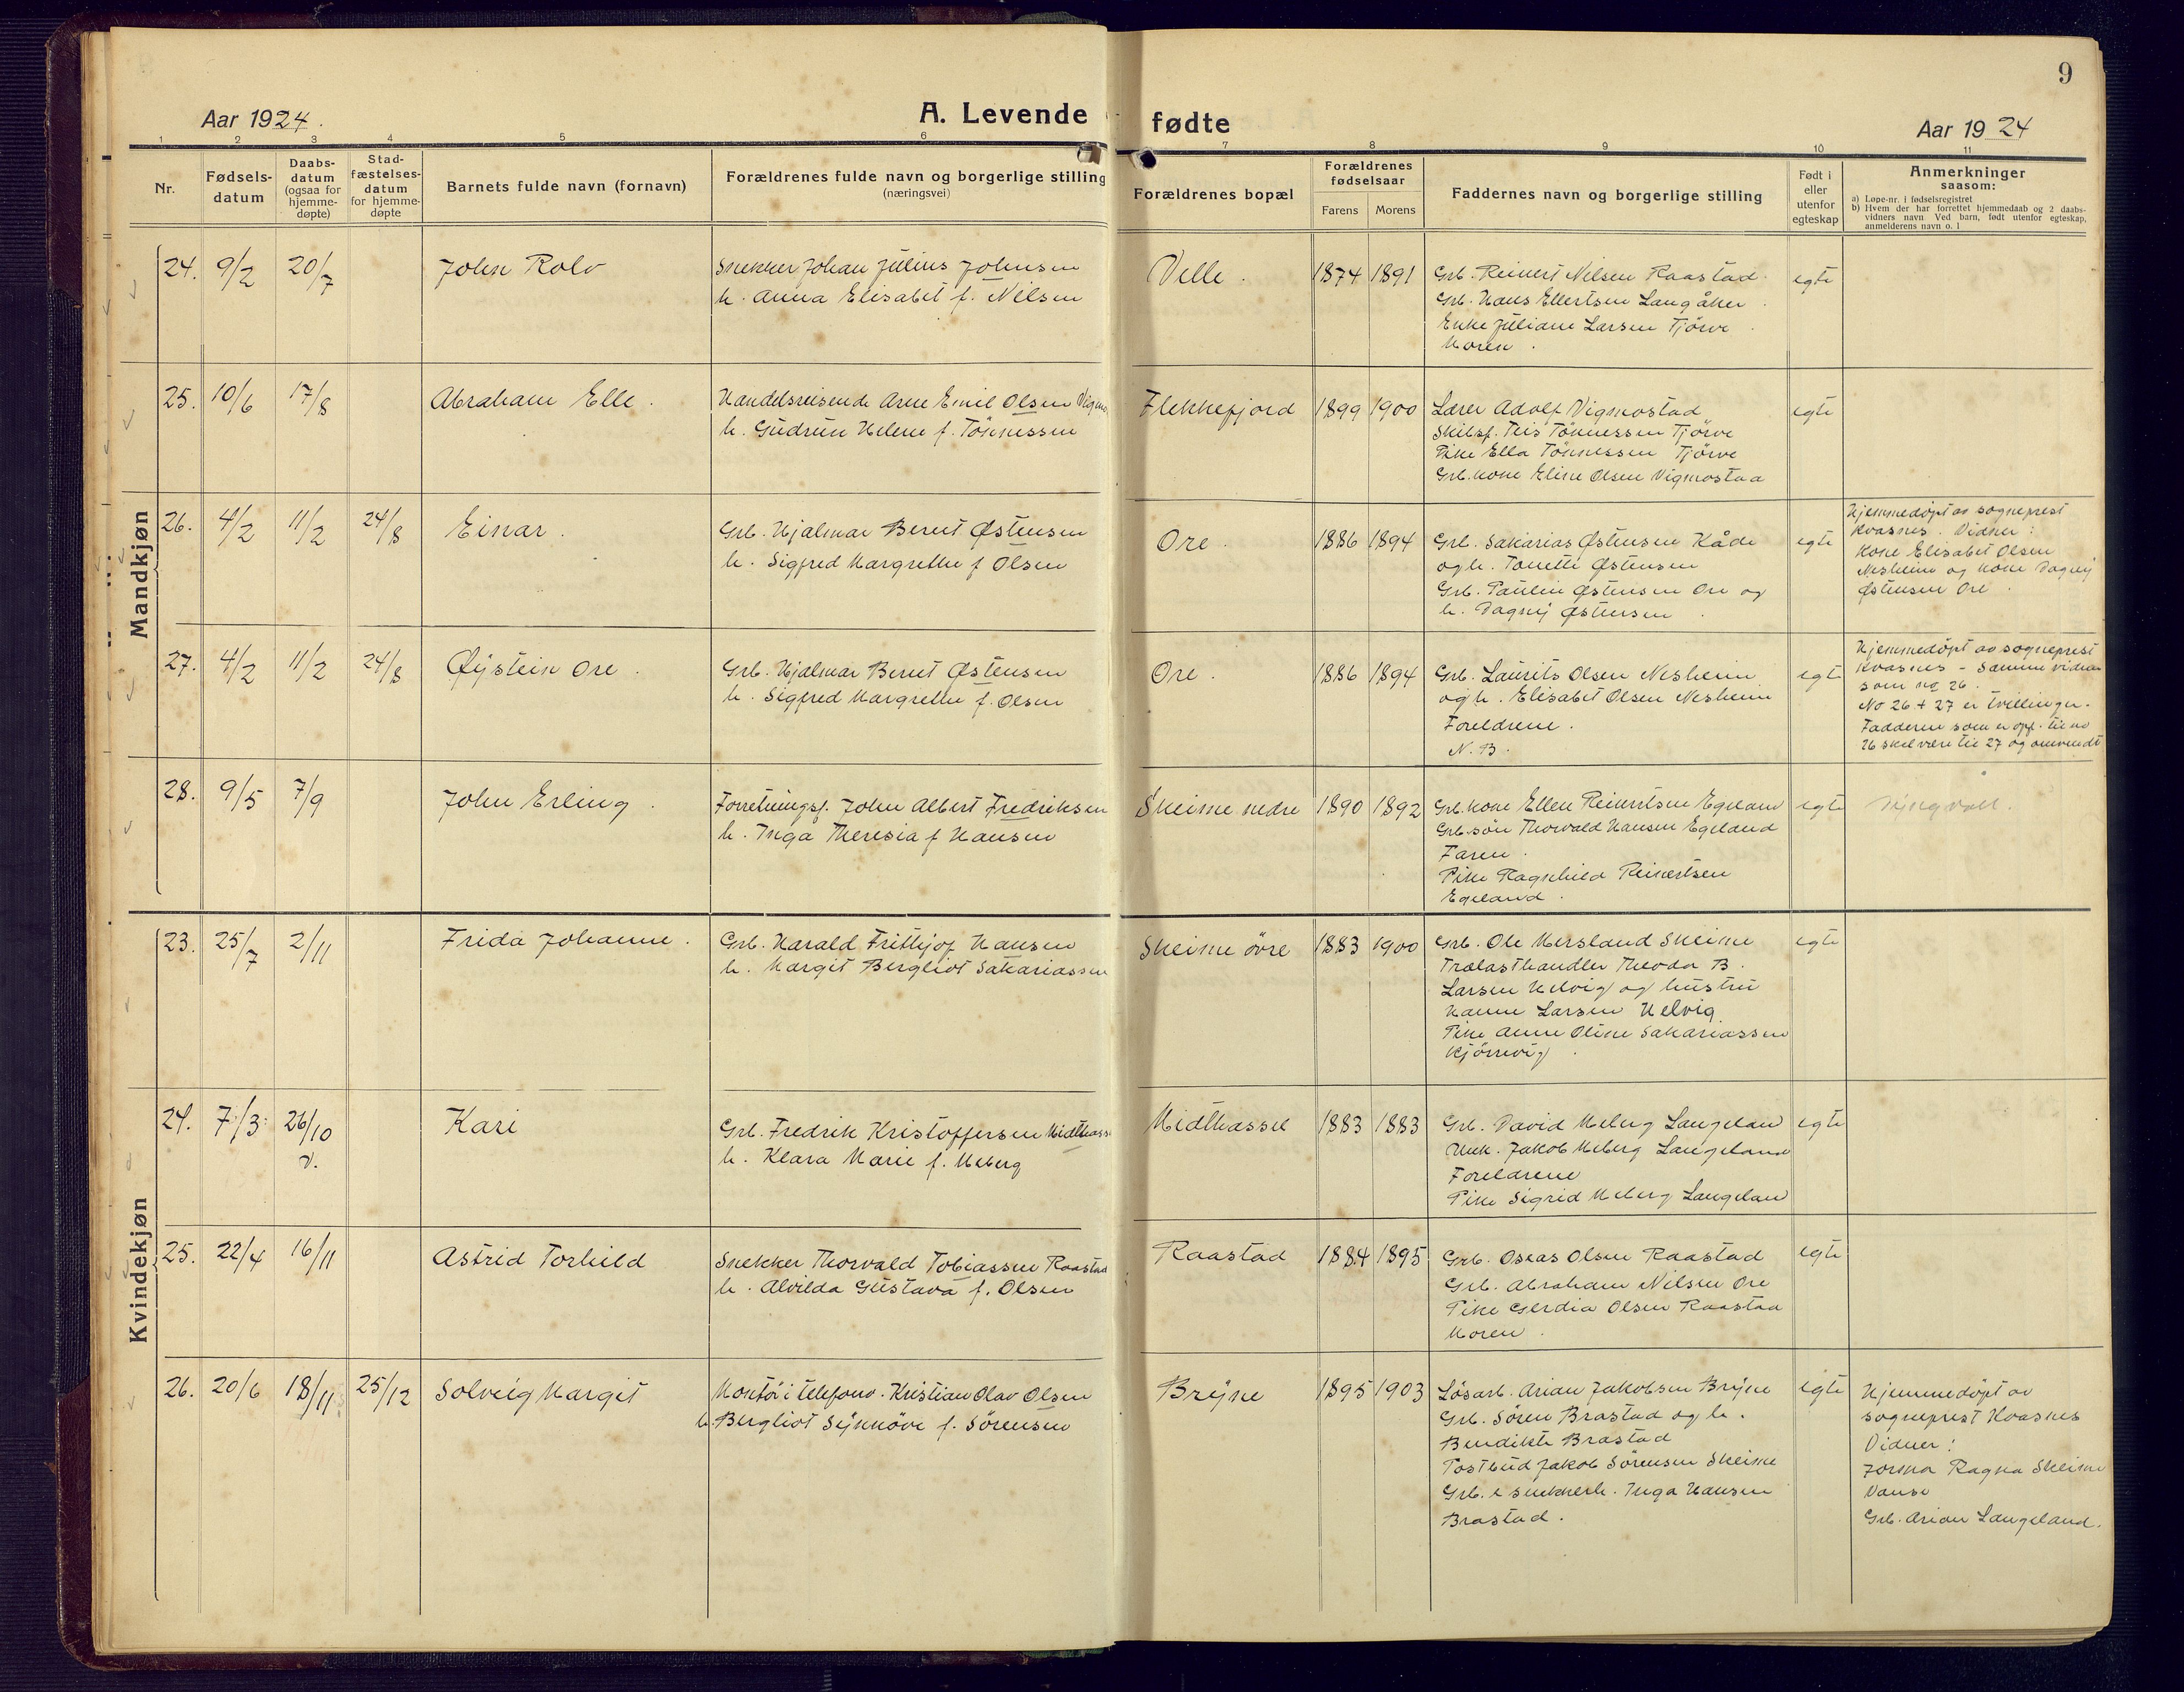 9
Aar 1924.
A. Levende fødte
Aar 1924
1 2 3 4 5 6 7 8 9 10 11
Nr.
Fødsels-
datum
Daabs-
datum
(ogsaa for
hjemme-
døpte)
Stad-
fæstelses-
datum
for hjemme-
døpte
Barnets fulde navn (fornavn)
Forældrenes fulde navn og borgerlige stilling
(næringsvei)
Forældrenes bopæl
Forældrenes
fødselsaar
Farens Morens
Faddernes navn og borgerlige stilling
Født i
eller
utenfor
egteskap
Anmerkninger
saasom:
a) Løpe-nr. i fødselsregistret
b) Hvem der har forrettet hjemmedaab og 2 daabs-
vidners navn Ved barn, født utenfor egteskap,
anmelderens navn o. l
Mandkjøn
24. 9/2 20/7 John Rolv
Snekker Johan Julius Johnsen
h. Anna Elisabet f. Nilsen
Velle. 1874 1891
Grb. Reinert Nilsen Raastad.
Grb. Hans Ellertsen Langåker.
Enke Juliane Larsen Tjörve.
Moren.
egte
25. 10/6 17/8 Abraham Elle.
Handelsreisende Arne Emil Olsen
h. Gudrun Helene f. Tönnessen
Flekkefjord 1899 1900
Lærer Adolf Vigmostad
Skibsf. Teis Tönnessen Tjörve
Pike Ella Tönnessen Tjörve
Grb. kone Eline Olsen Vigmostad
egte
26. 4/2 11/2 24/8 Einar.
Grb. Hjalmar Bernt Østensen
h. Sigfred Margrethe f Olsen
Ore. 1886 1894
Grb. Sakarias Østensen Kåde
og h. Tonetti Østensen
Grb. Paulin Østensen Ore og
h. Dagny Østensen.
egte
Hjemmedøpt av sogneprest
Kvasnes. Vidner:
Kone Elisabet Olsen
Nesheim og kone Dagny
Østensen Ore.
27. 4/2 11/2 24/8 Øystein Ore.
Grb. Hjalmar Bernt Østensen
h. Sigfred Margrethe f. Olsen
Ore. 1886 1894
Grb. Laurits Olsen Nesheim
og h. Elisabet Olsen Nesheim
Foreldrene.
N.B.
egte
Hjemmedøpt av sogneprest
Kvasnes - Samme vidner
som no 26.
No 26 + 27 er tvillinger.
Fadderne som er opf. til no
26 skal være til 27 og omvendt
28. 9/5 7/9 John Erling.
Forretningsf. John Albert Fredriksen
h. Inga Theresia f Hansen
Skeime nedre 1890 1892
Grb. kone Ellen Reinertsen Egeland
Grb. søn Thorvald Hansen Egeland
Faren.
Pike Ragnhild Reinertsen
Egeland.
egte
Kvindekjøn
23. 25/7 2/11 Frida Johanne.
Grb. Harald Frithjof Hansen
h. Margit Bergliot Sakariassen
Skeime övre 1883 1900
Grb. Ole Mersland Skeime
Trælasthandler Theodor B.
Larsen Helvig og hustru
Hanne Larsen Helvig.
Pike Anne Oline Sakariassen
Kjörrevig.
egte
24. 7/3 26/10 Kari
v.
Grb. Fredrik Kristoffersen Midthassel
h. Klara Marie f. Meberg
Midthassel 1883 1883
Grb. David Meberg Langeland
Unk. Jakob Meberg Langeland
Foreldrene
Pike Sigrid Meberg Langeland
egte
25. 22/4 16/11 Astrid Torhild
Snekker Thorvald Tobiassen Raastad
h. Alvilda Gustava f. Olsen
Raastad 1884 1895
Grb. Oskar Olsen Raastad
Grb. Abraham Nilsen Ore
Pike Gerdia Olsen Raastad
Moren.
egte
26. 20/6 18/11 25/12 Solveig Margit
Montör i telefonv. Kristian Olav Olsen
h. Bergliot Synnöve f. Sörensen
Bryne 1895 1903
Løsarb. Arian Jakobsen Bryne
Grb. Sören Brastad og h.
Bendikte Brastad
Postbud Jakob Sörensen Skeime
Grb. e snekkerh. Inga Hansen
Brastad.
egte
Hjemmedøpt av
sogneprest Kvasnes
Vidner:
Jorma Ragna Skeime
Vanse
Grb. Arian Langeland.